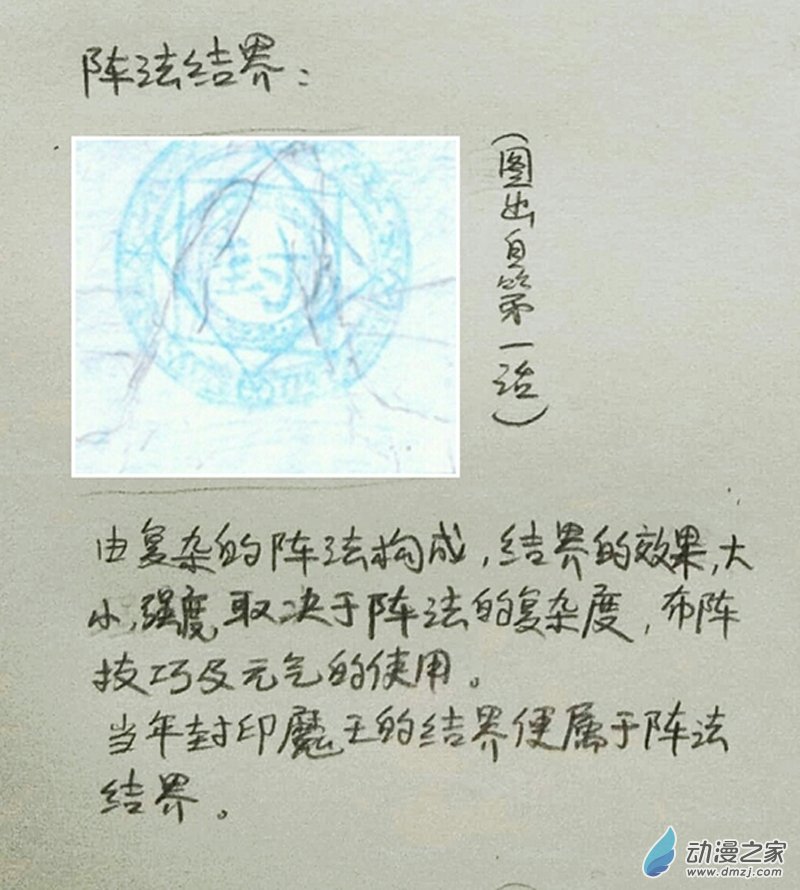 阵法结界：
封
（图出自第一话）
由复杂的阵法构成，结界的效果，大
小，强度，取决于阵法的复杂度，布阵
技巧及元气的使用。
当年封印魔王的结界便属于阵法
结界。
动漫之家
www.dmzj.com